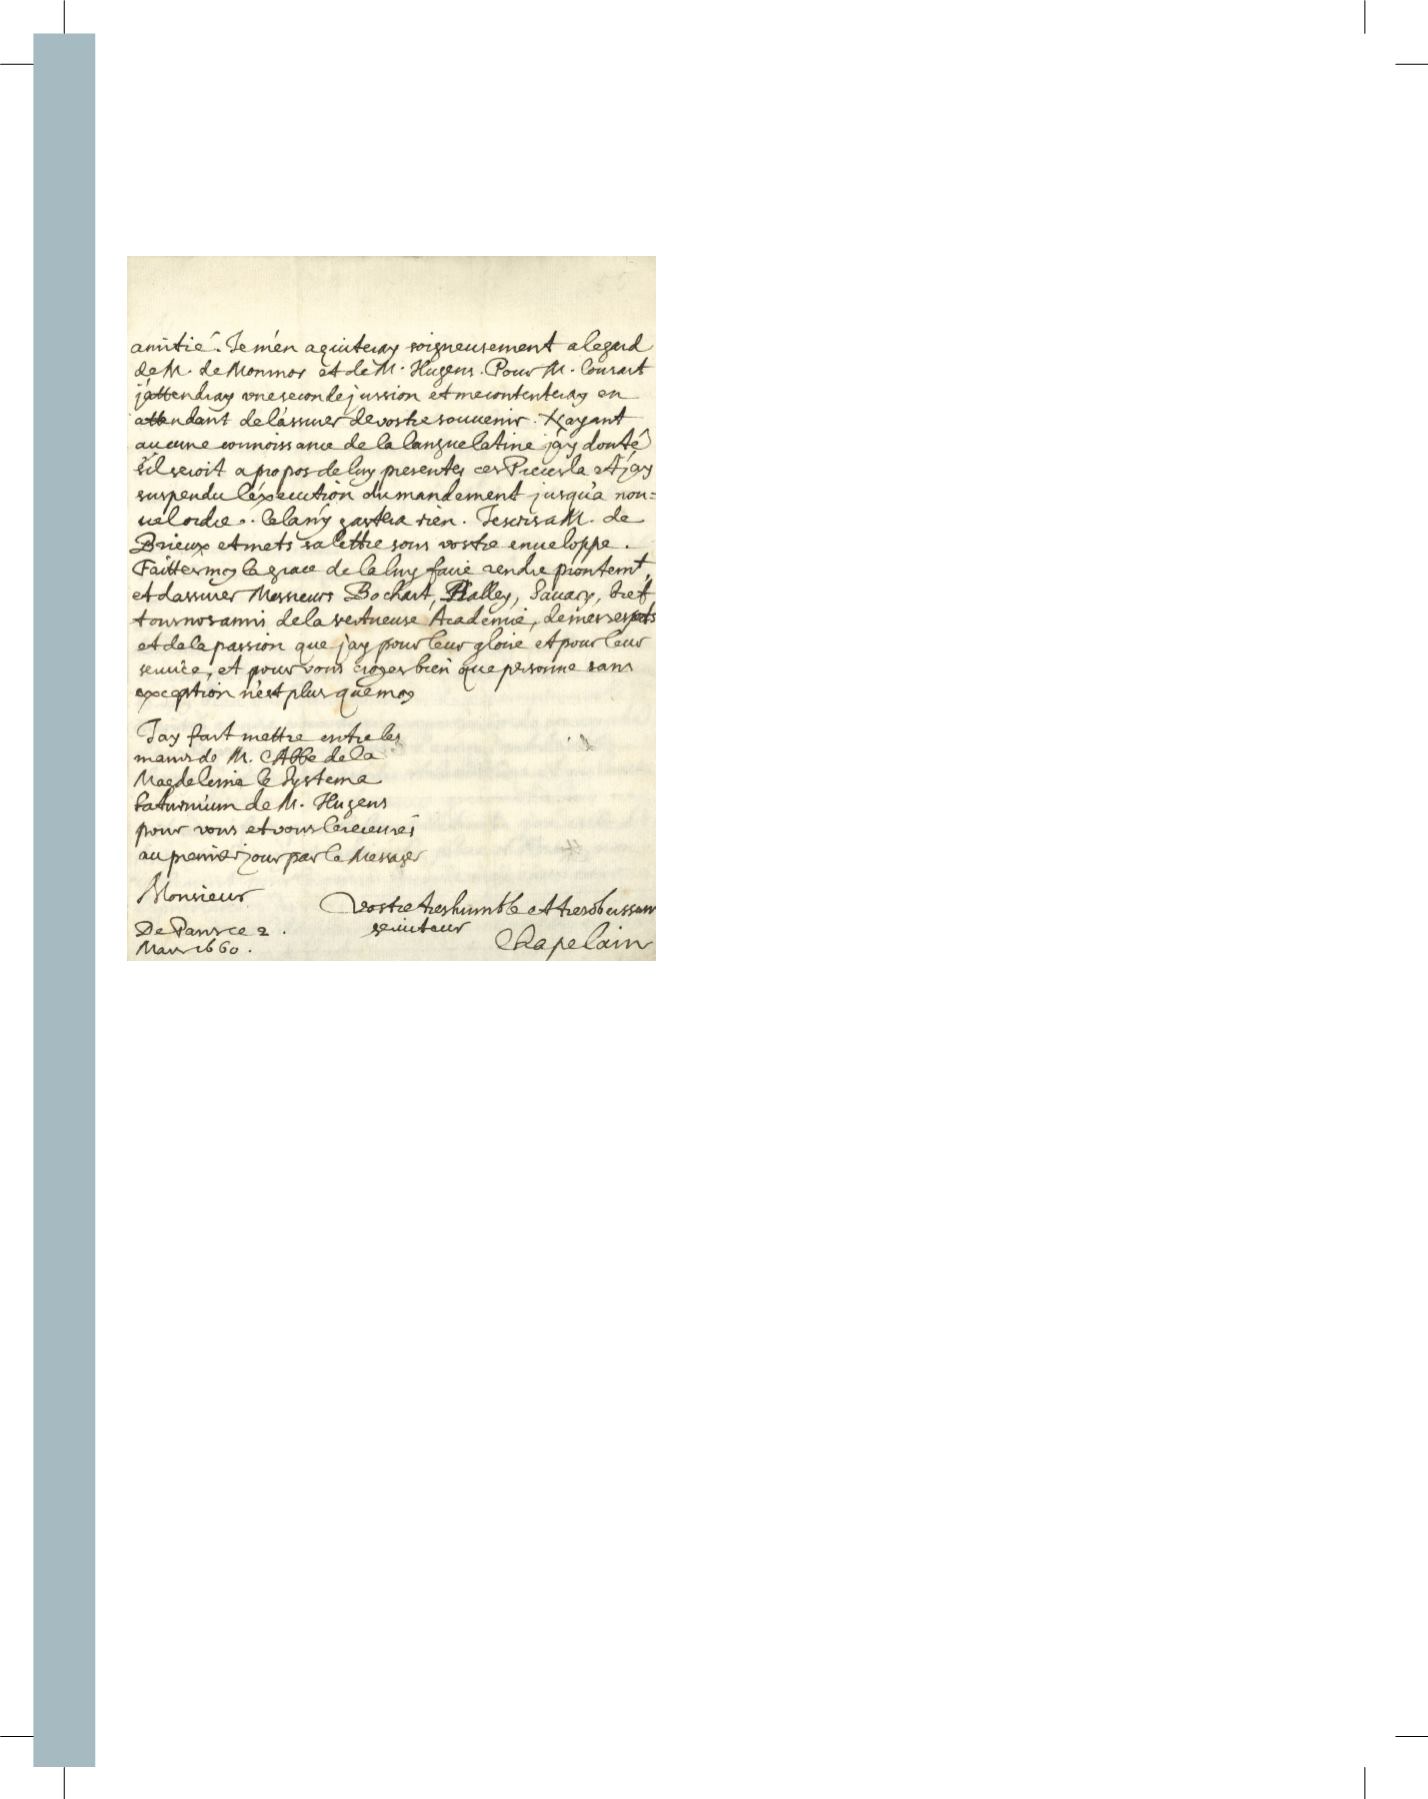 amitié. Je m'en aquiteray soigneusement a legard
de M. de Monmor et de M. Hugens. Pour M. Conrart
j'attendray une seconde jussion et me contenteray en
attendant de l'assurer de vostre souuenir. N'ayant
aucune connoissance de la langue latine j'ay douté
s'il seroit a propos de luy presenter ces et j'ay
suspendu l'éxecution du mandement jusqu'a nou=
uel ordre. Cela n'y gastera rien. J'escris a M. de
Brieux et mets sa lettre sous vostre enueloppe.
Faittes moy la grace de la luy faire rendre prontemt,
et dassurer Messieurs Bochart, Halley, Sauary, bref
tous nos amis de la vertueuse Academie, de mes respets
et de la passion que j'ay pour leur gloire et pour leur
seruice, et pour vous croyes bien que personne sans
exception n'est plus que moy
J'ay fait mettre entre les
mains de M. l'Abbe de la
Magdeleine le Systema
Saturnium de M. Hugens
pour vous et vous le receures
au premier jour par le Messager
Monsieur
Vostre tres humble et tres obeissant
seruiteur
De Paris ce 2.
Mars 1660.
Chapelain